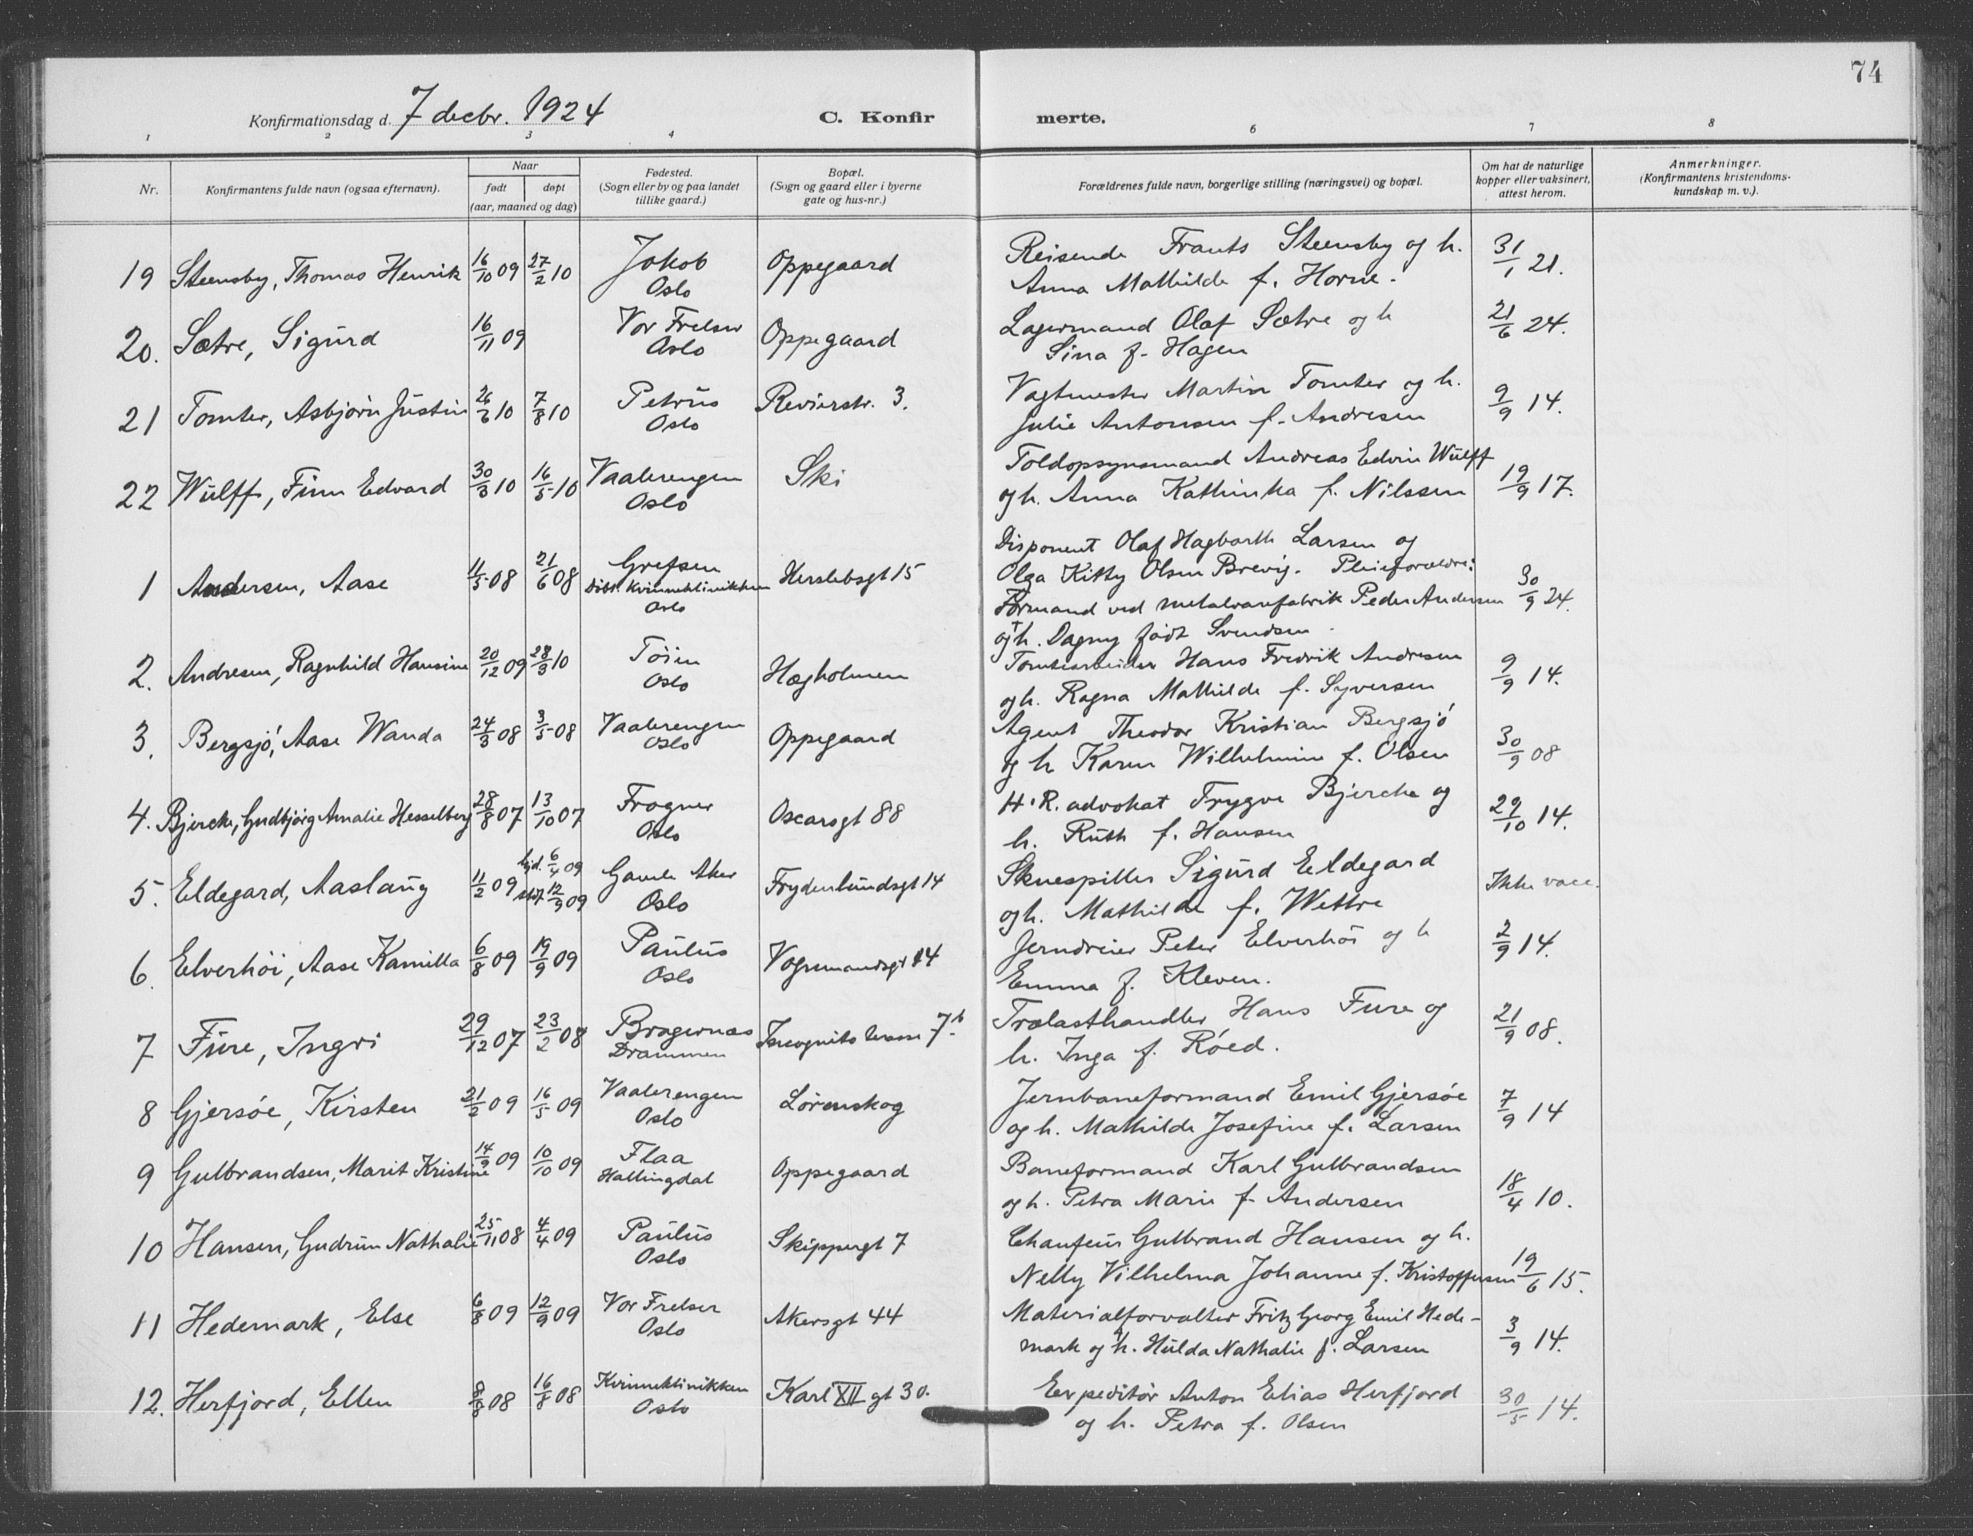 74
Konfirmationsdag d. 7 decbr. 1924 C. Konfir merte.
1 2 3 4 6 7 8
Nr. Konfirmantens fulde navn (ogsaa efternavn). Naar født døpt (aar, maaned og dag) Fødested. (Sogn eller by og paa landet tillike gaard.) Bopæl. (Sogn og gaard eller i byerne gate og hus-nr.) Forældrenes fulde navn, borgerlige stilling (næringsvei) og bopæl. Om hat de naturlige kopper eller vaksinert, attest herom. Anmerkninger. (Konfirmantens kristendoms-kundskap m. v.).
19 Steensby, Thomas Henrik 16/10 09 27/2 10 Jakob Oppegaard Reisende Frants Steensby og h. 31/1 21.
Oslo Anna Mathilde f. Horne.
20. Sætre, Sigurd 16/11 09 Vor Frelser Oppegaard Lagermand Olaf Sætre og h 21/6 24.
Oslo Sina f. Hagen
21 Tomter, Asbjørn Justin 26/6 10 7/8 10 Petrus Revierstr. 3. Vagtmester Martin Tomter og h. 9/9 14.
Oslo Julie Antonsen f. Andresen
22 Wulff, Finn Edvard 30/3 10 16/5 10 Vaalerengen Ski Toldopsynsmand Andreas Edvin Wulff 19/9 17.
Oslo og h. Anna Kathinka f. Nilssen
Disponent Olaf Hagbarth Larsen og
1 Andersen, Aase 11/5 08 21/6 08 Grefsen Herslebsgt 15 Olga Kitty Olsen Brevig. Pleieforældre: 30/9 24.
Kvinneklinikken Formand ved metalvarefabrik Peder Andersen
Oslo og h. Dagny født Svendsen.
2. Andresen, Ragnhild Hansine 20/12 09 28/3 10 Tøien Hægholmen Tomtearbeider Hans Fredrik Andresen 9/9 14.
Oslo og h. Ragna Mathilde f. Syversen
3. Bergsjø, Aase Wanda 24/3 08 3/5 08 Vaalerengen Oppegaard Agent Theodor Kristian Bergsjø 30/9 08
Oslo og h Karen Wilhelmine f. Olsen
4. Bjercke, Gudbjørg Amalie Hesselberg 28/8 07 13/10 07 Frogner Oscarsgt 88 H.R. advokat Trygve Bjercke og 29/10 14.
Oslo h. Ruth f. Hansen
5. Eldegard, Aaslaug 11/2 09 hjd. 6/4 09 stdf. 12/9 09 Gamle Aker Frydenlundsgt 14 Skuespiller Sigurd Eldegard Ikke vacc.
Oslo og h. Mathilde f. Wettre
6. Elverhöi, Aase Kamilla 6/8 09 19/9 09 Paulus Vognmandsgt 14 Jerndreier Peter Elverhöi og h 2/9 14.
Oslo Emma f. Kleven.
7 Fure, Ingri 29/12 07 23/2 08 Bragernæs Incognito terrasse 7b. Trælasthandler Hans Fure og 21/9 08.
Drammen h. Inga f. Röed.
8 Gjersøe, Kirsten 21/2 09 16/5 09 Vaalerengen Lørenskog Jernbaneformand Emil Gjersøe 7/9 14
Oslo og h. Mathilde Josefine f. Larsen
9 Gulbrandsen, Marit Kristine 14/9 09 10/10 09 Flaa Oppegaard Baneformand Karl Gulbrandsen 18/4 10.
Hallingdal og h. Petra Marie f. Andersen
10 Hansen, Gudrun Nathalie 25/11 08 4/4 09 Paulus Skippergt 7 Chauffeur Gulbrand Hansen og h. 19/6 15.
Oslo Nelly Vilhelma Johanne f. Kristoffersen
11 Hedemark, Else 6/8 09 12/9 09 Vor Frelser Akersgt 44 Materialforvalter Fritz Georg Emil Hede- 3/9 14.
Oslo mark og h. Hulda Nathalie f. Larsen
12. Herfjord, Ellen 8/8 08 16/8 08 Kvinneklinikken Karl XII gt 30. Expeditør Anton Elias Herfjord 30/5 14.
Oslo og h. Petra f. Olsen